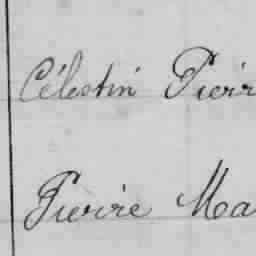 Célestin Pierr
Pierre Ma